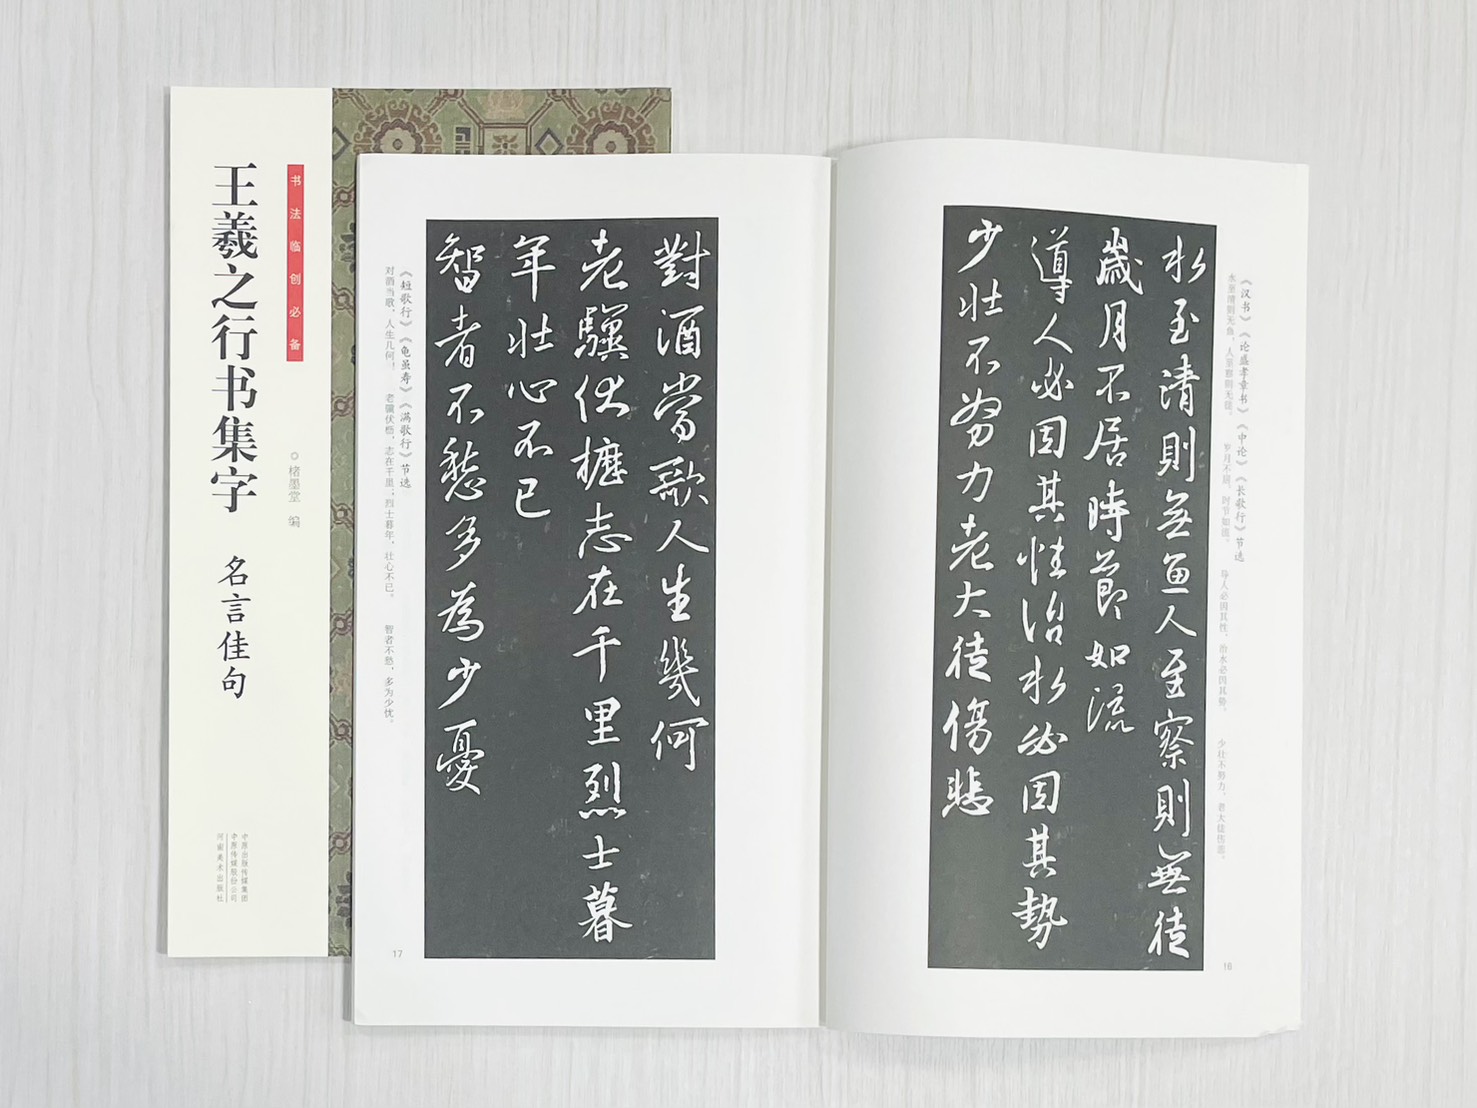 书法临创必备
王羲之行书集字 名言佳句
○楮墨堂 编
中原出版传媒集团
中原传媒股份公司
河南美术出版社
《汉书》《论盛孝章书》《中论》《长歌行》节选
水至清则无鱼，人至察则无徒。 岁月不居，时节如流。 导人必因其性，治水必因其势。 少壮不努力，老大徒伤悲。
水至清則無魚人至察則無徒
歲月不居時節如流
導人必因其性治水必因其勢
少壯不努力老大徒傷悲
16
對酒當歌人生幾何
老驥伏櫪志在千里烈士暮
年壯心不已
智者不愁多為少憂
《短歌行》《龟虽寿》《满歌行》节选
对酒当歌，人生几何！ 老骥伏枥，志在千里；烈士暮年，壮心不已。 智者不愁，多为少忧。
17